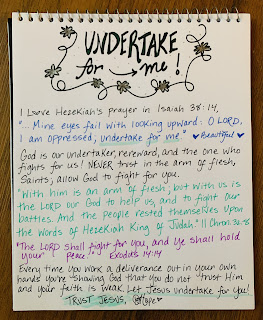 UNDERTAKE
for → me!
I love Hezekiah's prayer in Isaiah 38:14,
"... Mine eyes fail with looking upward: O LORD,
I am oppressed; undertake for me." ♥Beautiful♥
God is our undertaker, rereward, and the one who
fights for us! NEVER trust in the arm of flesh,
Saints; allow God to fight for you.
"With him is an arm of flesh; but with us is
the LORD our God to help us, and to fight our
battles. And the people rested themselves upon
the words of Hezekiah King of Judah." II Chron. 32:8
"The LORD shall fight for you, and ye shall hold
your peace." Exodus 14:14
Every time you work a deliverance out in your own
hands you're showing God that you do not trust Him
and your faith is weak. Let Jesus undertake for you!
TRUST JESUS,